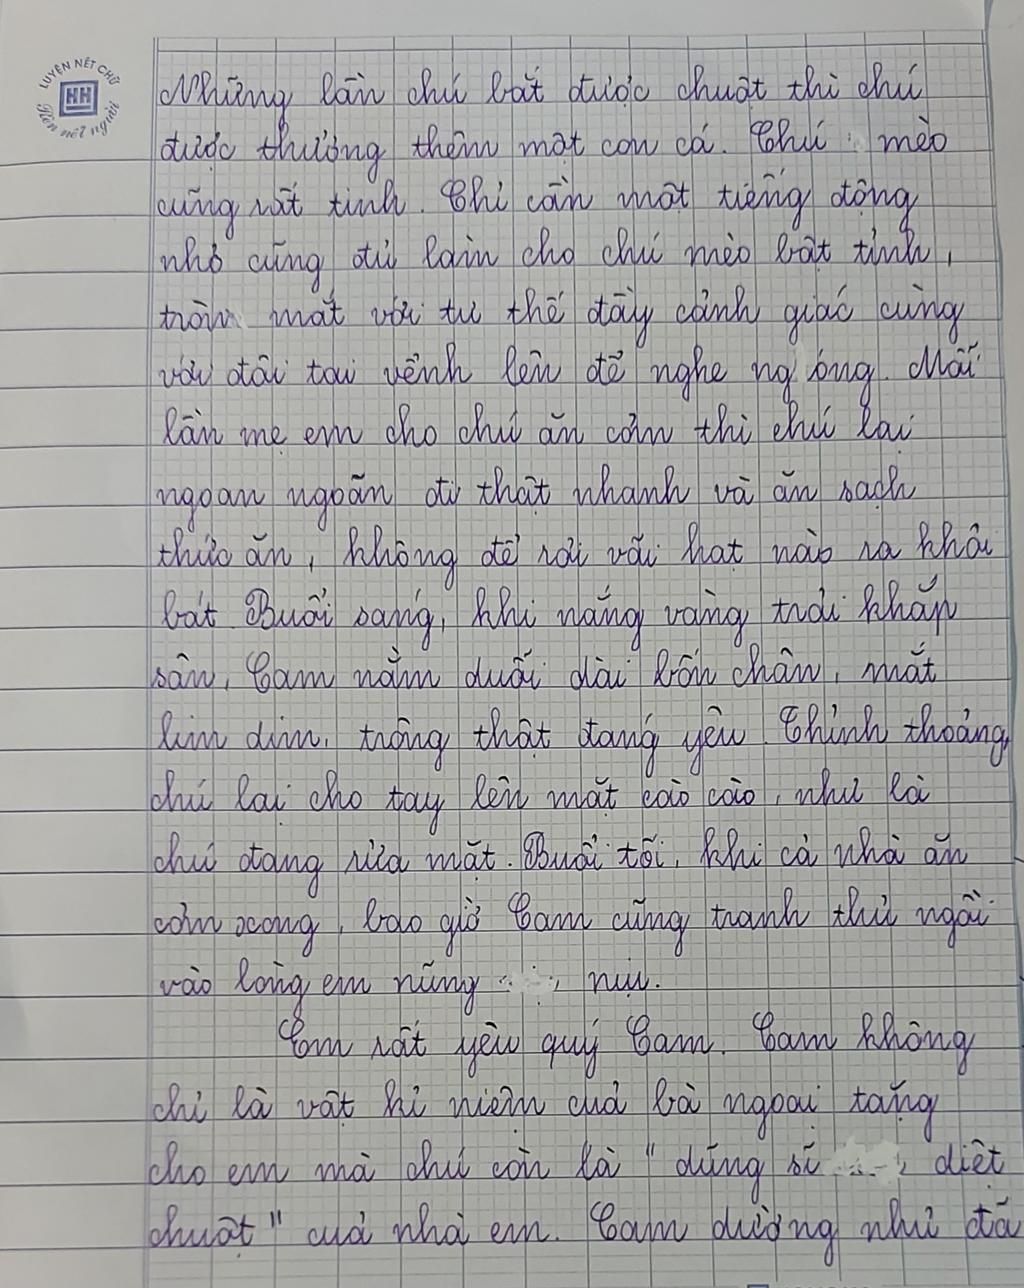 LUYỆN NÉT CHỮ
HH
Rèn nết người
Những lần chú bắt được chuột thì chú
được thưởng thêm một con cá. Chú mèo
cũng rất tinh. Chỉ cần một tiếng động
nhỏ cũng đủ làm cho chú mèo bật tỉnh,
tròn mắt với tư thế đầy cảnh giác cùng
với đôi tai vểnh lên để nghe ngóng. Mỗi
lần mẹ em cho chú ăn cơm thì chú lại
ngoan ngoãn đi thật nhanh và ăn sạch
thức ăn, không để rơi vãi hạt nào ra khỏi
bát. Buổi sáng, khi nắng vàng trải khắp
sân, Cam nằm duỗi dài bốn chân, mắt
lim dim, trông thật đáng yêu. Thỉnh thoảng,
chú lại cho tay lên mặt cào cào, như là
chú đang rửa mặt. Buổi tối, khi cả nhà ăn
cơm xong, bao giờ Cam cũng tranh thủ ngồi
vào lòng em nũng nịu.
Em rất yêu quý Cam. Cam không
chỉ là vật kỉ niệm của bà ngoại tặng
cho em mà chú còn là "dũng sĩ diệt
chuột" của nhà em. Cam dường như đã